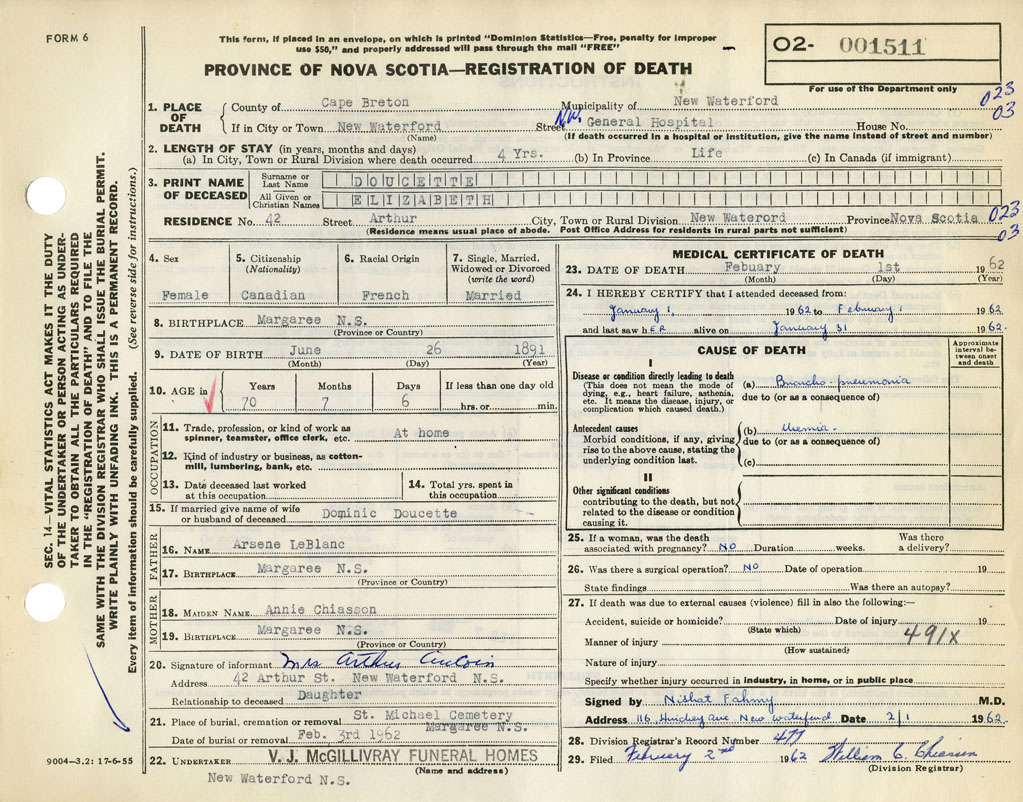 FORM 6
This form, if placed in an envelope, on which is printed "Dominion Statistics—Free, penalty for improper
use $50," and properly addressed will pass through the mail "FREE"
PROVINCE OF NOVA SCOTIA—REGISTRATION OF DEATH
02- 001511
For use of the Department only
023
03
1. PLACE OF DEATH
County of Cape Breton Municipality of New Waterford
If in City or Town New Waterford Street N.W. General Hospital House No.
(Name) (If death occurred in a hospital or institution, give the name instead of street and number)
2. LENGTH OF STAY (in years, months and days)
(a) In City, Town or Rural Division where death occurred 4 Yrs. (b) In Province Life (c) In Canada (if immigrant)
3. PRINT NAME OF DECEASED
Surname or Last Name DOUCETTE
All Given or Christian Names ELIZABETH
RESIDENCE No. 42 Street Arthur City, Town or Rural Division New Waterord Province Nova Scotia 023
03
(Residence means usual place of abode. Post Office Address for residents in rural parts not sufficient)
4. Sex
Female
5. Citizenship
(Nationality)
Canadian
6. Racial Origin
French
7. Single, Married,
Widowed or Divorced
(write the word)
Married
8. BIRTHPLACE Margaree N.S.
(Province or Country)
9. DATE OF BIRTH June 26 1891
(Month) (Day) (Year)
10. AGE in
Years Months Days If less than one day old
70 7 6 hrs. or min.
OCCUPATION
11. Trade, profession, or kind of work as
spinner, teamster, office clerk, etc. At home
12. Kind of industry or business, as cotton-
mill, lumbering, bank, etc.
13. Date deceased last worked
at this occupation
14. Total yrs. spent in
this occupation
15. If married give name of wife
or husband of deceased Dominic Doucette
FATHER
16. NAME Arsene LeBlanc
17. BIRTHPLACE Margaree N.S.
(Province or Country)
MOTHER
18. MAIDEN NAME Annie Chiasson
19. BIRTHPLACE Margaree N.S.
(Province or Country)
20. Signature of informant Mrs Arthur Aucoin
Address 42 Arthur St. New Waterford N.S.
Relationship to deceased Daughter
21. Place of burial, cremation or removal St. Michael Cemetery
Margaree N.S.
Date of burial or removal Feb. 3rd 1962
22. UNDERTAKER V. J. McGILLIVRAY FUNERAL HOMES
(Name and address)
New Waterford N.S.
MEDICAL CERTIFICATE OF DEATH
23. DATE OF DEATH Febuary 1st 1962
(Month) (Day) (Year)
24. I HEREBY CERTIFY that I attended deceased from:
January 1, 1962 to February 1 1962
and last saw hER alive on January 31 1962.
CAUSE OF DEATH
Approximate
interval be-
tween onset
and death
I
Disease or condition directly leading to death
(This does not mean the mode of
dying, e.g., heart failure, asthenia,
etc. It means the disease, injury, or
complication which caused death.)
(a) Broncho-pneumonia
due to (or as a consequence of)
Antecedent causes
Morbid conditions, if any, giving
rise to the above cause, stating the
underlying condition last.
(b) Uremia.
due to (or as a consequence of)
(c)
II
Other significant conditions
contributing to the death, but not
related to the disease or condition
causing it.
25. If a woman, was the death
associated with pregnancy? NO Duration weeks. Was there
a delivery?
26. Was there a surgical operation? NO Date of operation 19
State findings Was there an autopsy?
27. If death was due to external causes (violence) fill in also the following:—
Accident, suicide or homicide? Date of injury 19
(State which)
Manner of injury 491X
(How sustained)
Nature of injury
Specify whether injury occurred in industry, in home, or in public place
Signed by Nishat Fahmy M.D.
Address 116 Hinchey Ave New Waterford Date 2/1 1962.
28. Division Registrar's Record Number 477
29. Filed February 2nd 1962 William C. Chiasson
(Division Registrar)
SEC. 14—VITAL STATISTICS ACT MAKES IT THE DUTY
OF THE UNDERTAKER OR PERSON ACTING AS UNDER-
TAKER TO OBTAIN ALL THE PARTICULARS REQUIRED
IN THE "REGISTRATION OF DEATH" AND TO FILE THE
SAME WITH THE DIVISION REGISTRAR WHO SHALL ISSUE THE BURIAL PERMIT.
WRITE PLAINLY WITH UNFADING INK. THIS IS A PERMANENT RECORD.
Every item of information should be carefully supplied. (See reverse side for instructions.)
9004—3.2: 17-6-55